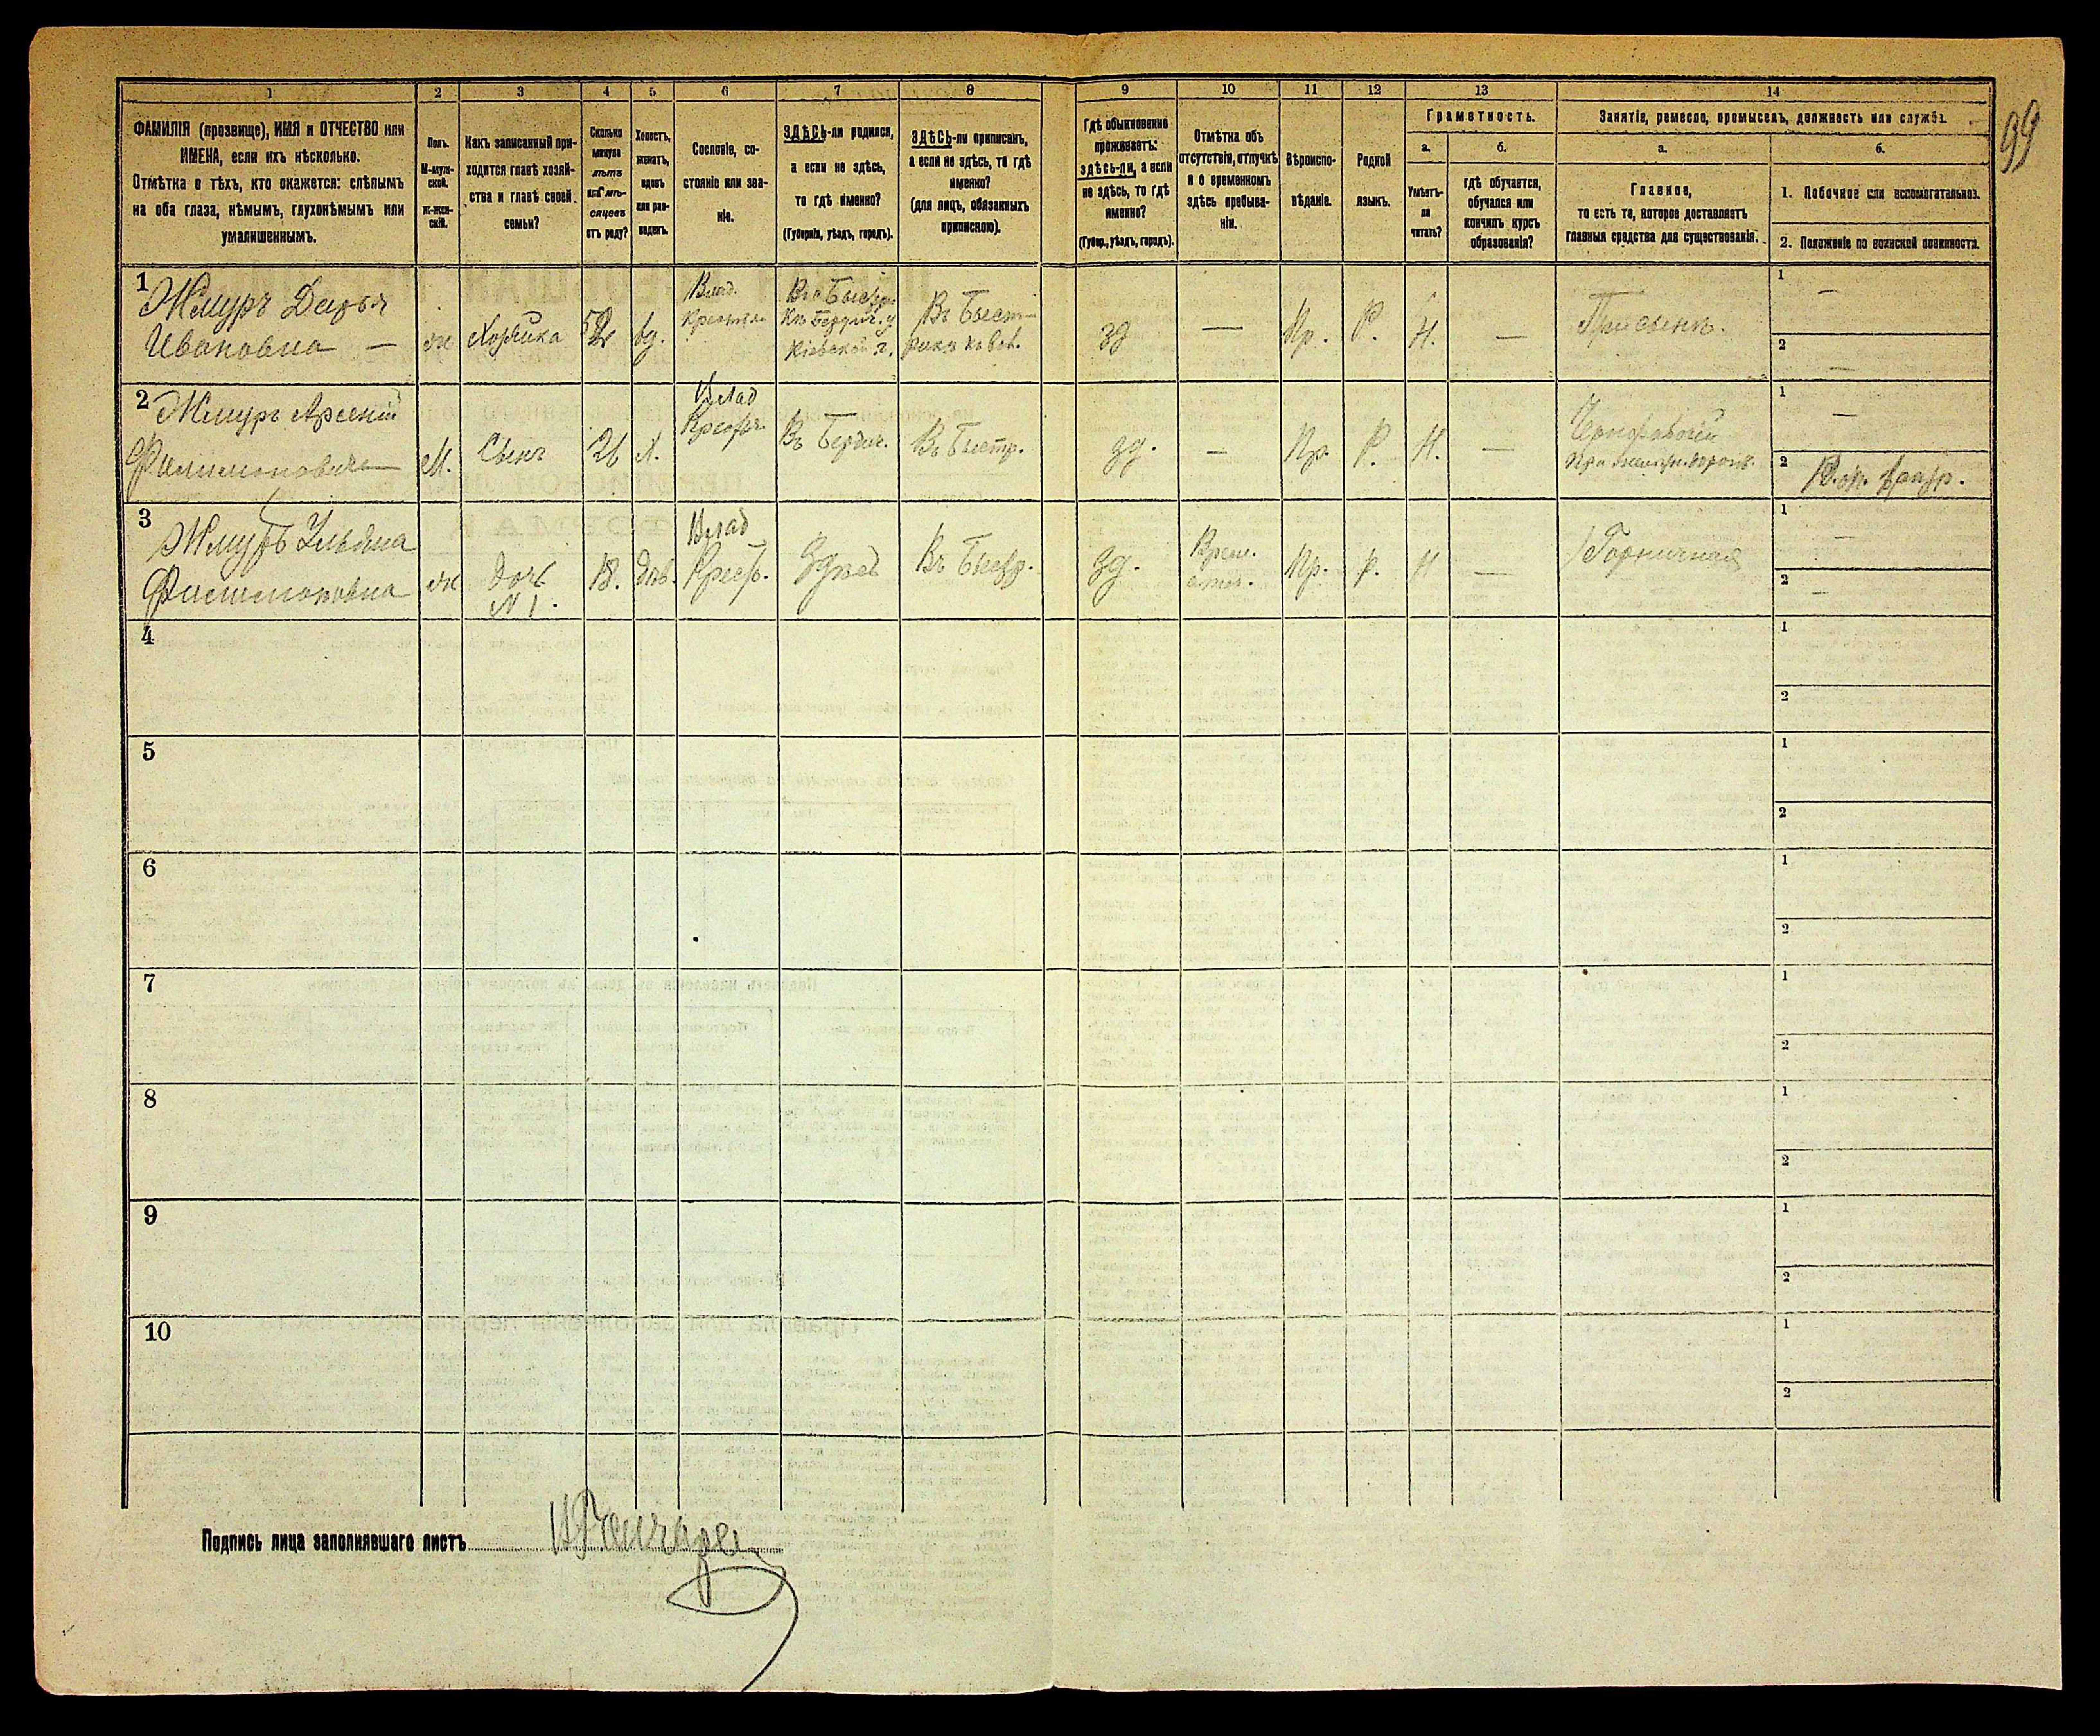 99
1
2
3
4
5
6
7
8
9
10
11
12
13
14
ФАМИЛІЯ (прозвище), ИМЯ и ОТЧЕСТВО или
ИМЕНА, если ихъ нѣсколько.
Отмѣтка о тѣхъ, кто окажется: слѣпымъ
на оба глаза, нѣмымъ, глухонѣмымъ или
умалишеннымъ.
Полъ.
М-муж-
ской.
Ж-жен-
скій.
Какъ записанный при-
ходится главѣ хозяй-
ства и главѣ своей
семьи?
Сколько
минуло
лѣтъ
или мѣ-
сяцевъ
отъ роду?
Холостъ,
женатъ,
вдовъ
или раз-
веденъ.
Сословіе, со-
стояніе или зва-
ніе.
ЗДѢСЬ-ли родился,
а если не здѣсь,
то гдѣ именно?
(Губернія, уѣздъ, городъ).
ЗДѢСЬ-ли приписанъ,
а если не здѣсь, то гдѣ
именно?
(для лицъ, обязанныхъ
припискою).
Гдѣ обыкновенно
проживаетъ:
здѣсь-ли, а если
не здѣсь, то гдѣ
именно?
(Губер., уѣздъ, городъ).
Отмѣтка объ
отсутствіи, отлучкѣ
и о временномъ
здѣсь пребыва-
ніи.
Вѣроиспо-
вѣданіе.
Родной
языкъ.
Грамотность.
а.
Умѣетъ-
ли
читать?
б.
гдѣ обучается,
обучался или
кончилъ курсъ
образованія?
Занятіе, ремесло, промыселъ, должность или служба.
а.
Главное,
то есть то, которое доставляетъ
главныя средства для существованія.
б.
1. Побочное или вспомогательное.
2. Положеніе по воинской повинности.
1
Жмуръ Дарья
Ивановна —
ж
Хозяйка
52
вд.
Влад.
Бердич. у
Кіевской г.
Въ Быст-
зд
—
Пр.
Р.
Н.
—
При сынѣ.
1 —
2 —
2
Жмуръ Арсеній
Филимоновичъ
М.
Сынъ
26
Х.
Влад
Крест.
Въ Бердич.
Въ Быстр.
зд.
—
Пр.
Р.
Н.
—
Чернорабочій
при желѣзн. дорогѣ.
1 —
2
3
Жмуръ Ульяна
Филимоновна
ж
дочь
№ 1.
18.
дѣв.
Влад
Крест.
Здѣсь
Въ Быстр.
зд.
Врем.
отл.
Пр.
Р.
Н
—
Горничная
1 —
2 —
4
1
2
5
1
2
6
1
2
7
1
2
8
1
2
9
1
2
10
1
2
Подпись лица заполнявшаго листъ